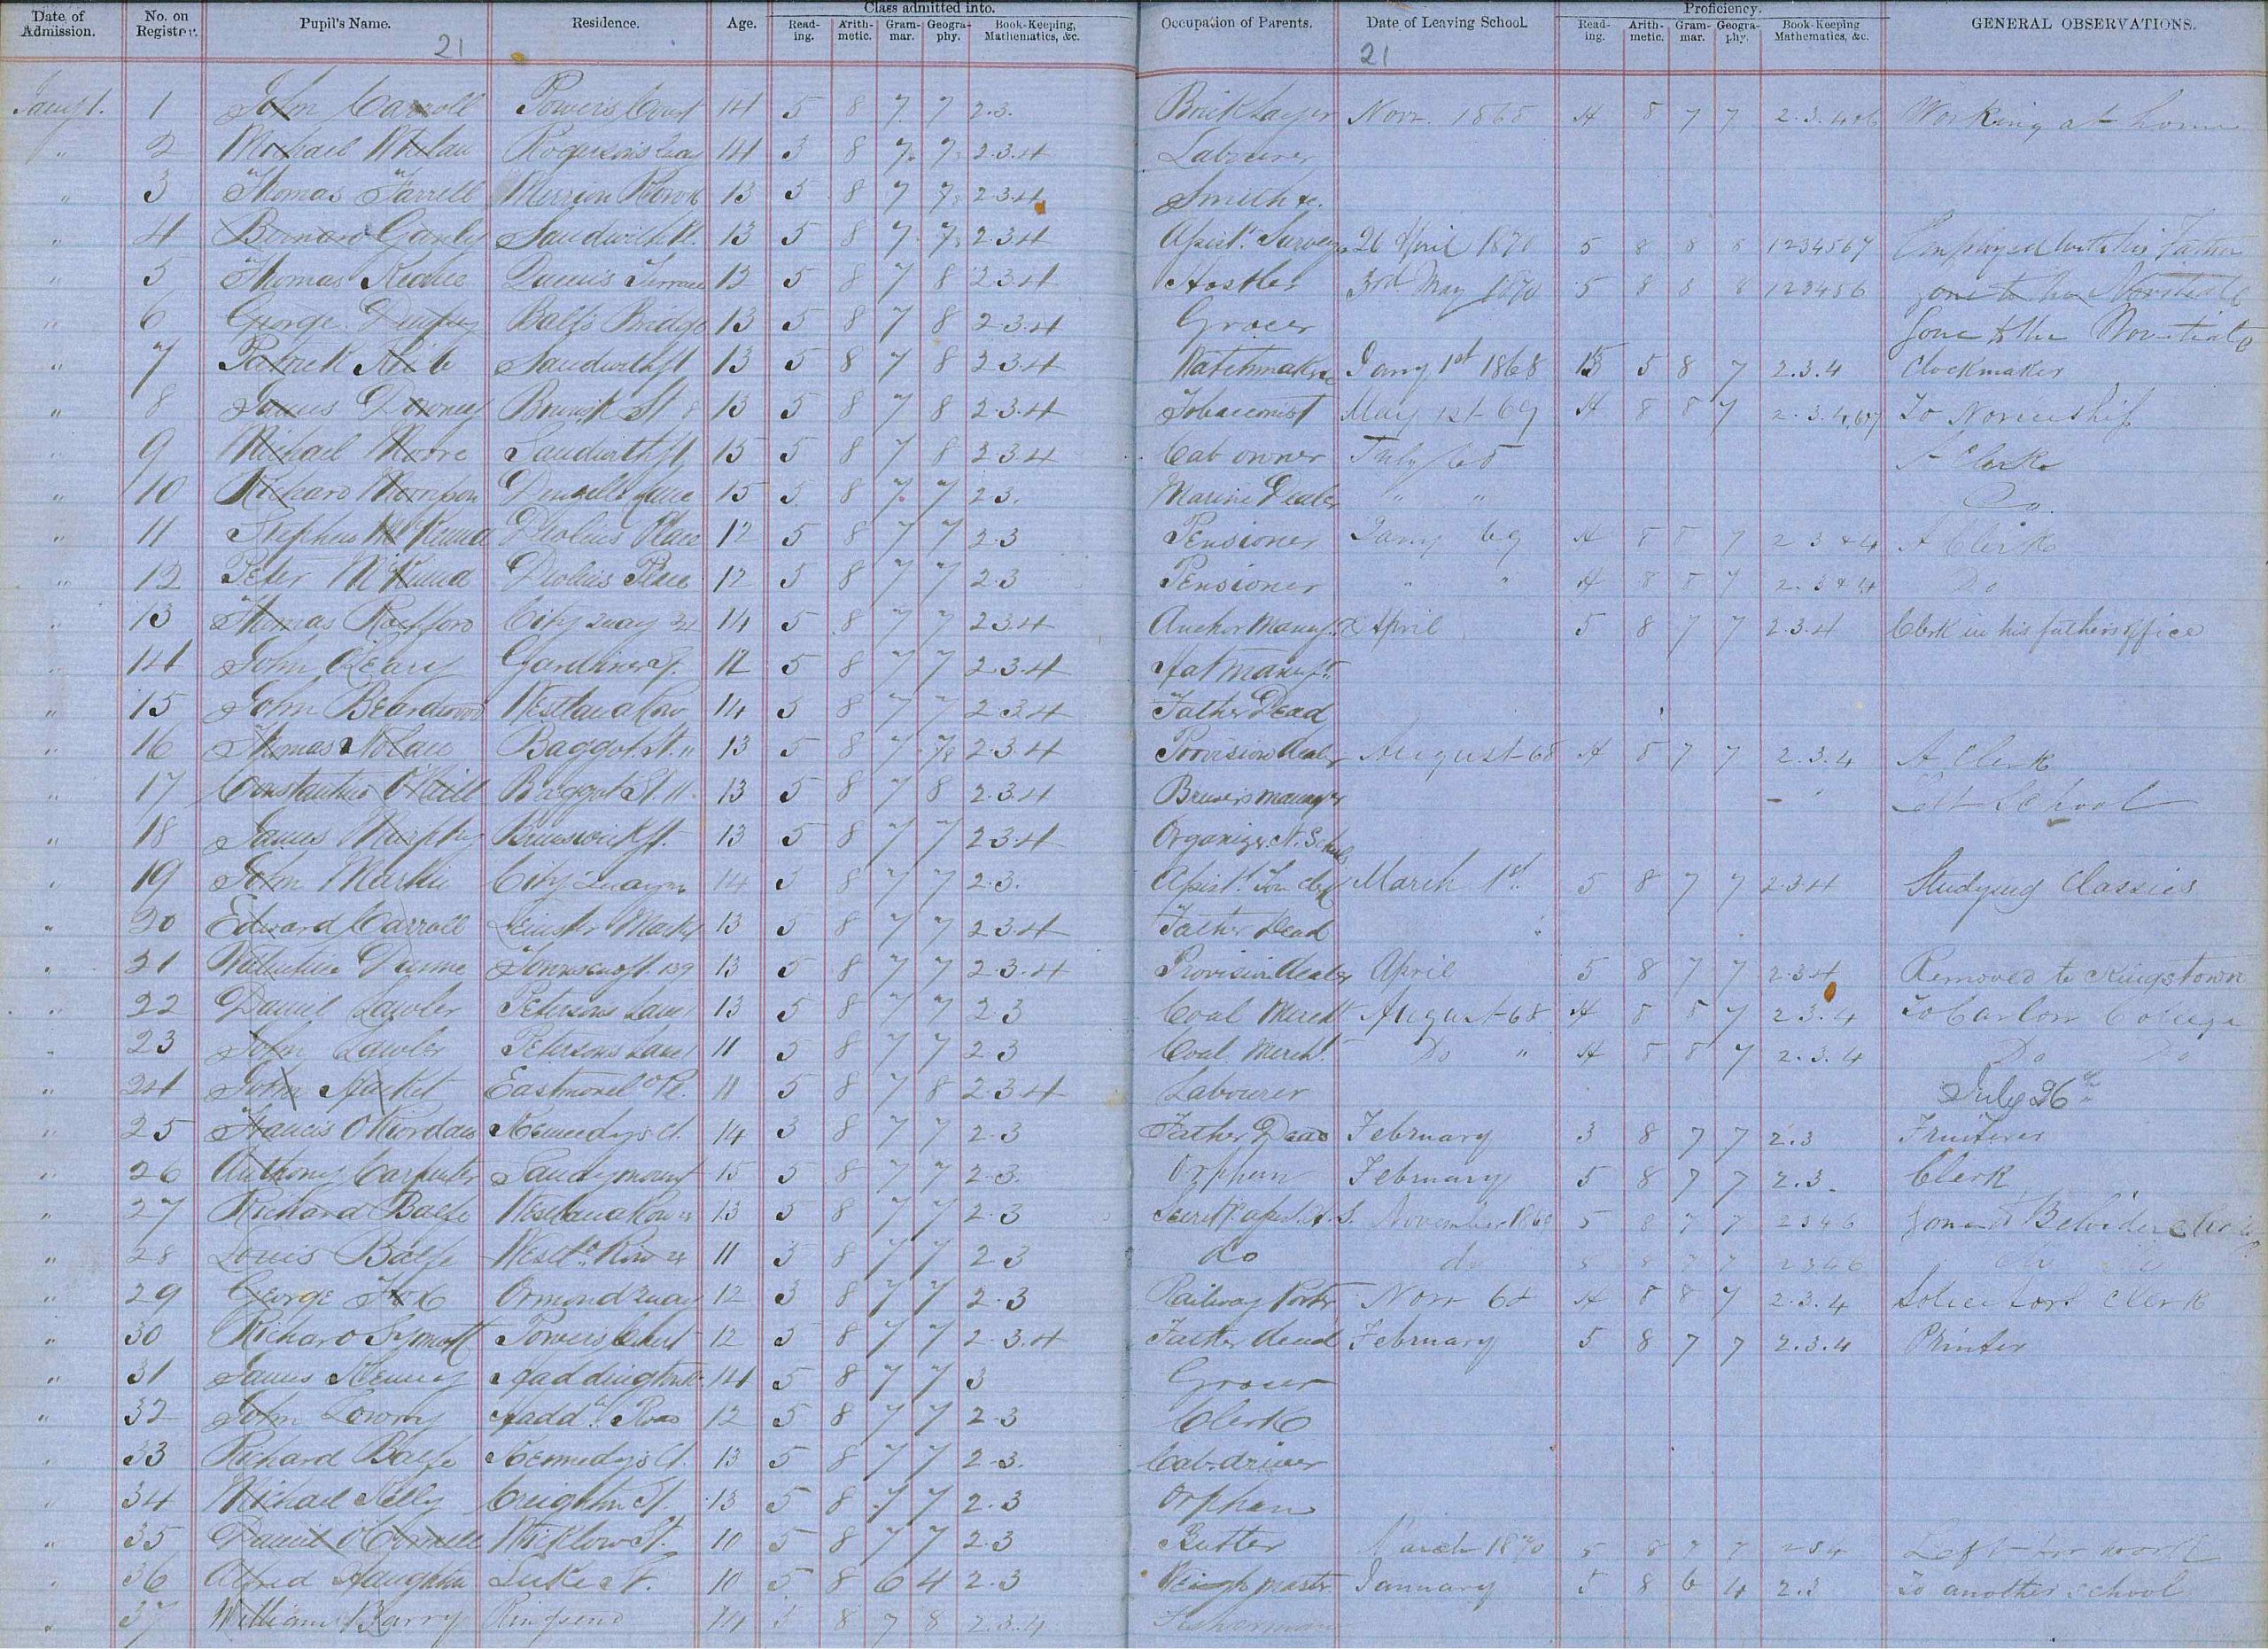 Date of Admission. No. on Register. Pupil's Name. Residence. Age. Class admitted into. Reading. Arithmetic. Grammar. Geography. Book-Keeping, Mathematics, &c. Occupation of Parents. Date of Leaving School. Proficiency. Reading. Arithmetic. Grammar. Geography. Book-Keeping Mathematics, &c. GENERAL OBSERVATIONS.
21 21
Jany 1. 1 John Carroll Powers Court 14 5 8 7 7 2.3. Brick Layer Nov. 1868 4 8 7 7 2.3.4 Working at home
" 2 Michael Whelan Rogersons Quay 14 3 8 7. 7 2.3.4 Labourer
" 3 Thomas Farrell Merrion Row 13 5 8 7 7 2.3.4 Smith &c.
" 4 Bernard Ganly Sandwith St. 13 5 8 7 7 2.3.4 Assist. Surveyor 26 April 1870 5 8 8 8 1234567 Employed with his Father
" 5 Thomas Keohe Queen's Terrace 12 5 8 7 8 2.3.4 Hostler 3rd May 1870 5 8 8 8 123456 gone to the Novitiate
" 6 George Balfs Bridge 13 5 8 7 8 2.3.4 Grocer Gone to the Novitiate
" 7 Patrick Sandwith St 13 5 8 7 8 2.3.4 Watchmaker Jany 1st 1868 5 8 7 2.3.4 Clockmaker
" 8 James Downey Brunsk St. 8 13 5 8 7 8 2.3.4 Tobacconist May 1st 69 4 8 8 7 2.3.4 To Noviceship
" 9 Michael Moore Sandwith St 15 5 8 7 8 2 3 4 Cab owner July 68 A Clerk
" 10 Richard Thompson Denzille Lane 15 5 8 7. 7 2 3. Marine Dealer " " Do.
" 11 Stephen McKenna Place 12 5 8 7 7 2.3 Pensioner Jany 69 4 8 8 7 2 3 & 4 A Clerk
" 12 Peter McKenna Place 12 5 8 7 7 2.3 Pensioner " " 4 8 8 7 2. 3 & 4 Do
" 13 Thomas Rochford City Quay 14 5 8 7 7 2.3.4 Anchor Manuf. April 5 8 7 7 2.3.4 Clerk in his father's office
" 14 John O'Leary Gardiner St. 12 5 8 7 7 2.3.4 Hat Manuf.
" 15 John Beardwood Westland Row 14 5 8 7 7 2.3.4 Father Dead
" 16 Thomas Nolan Baggot St. 11 13 5 8 7 7 2.3.4 Provision dealer August 68 4 8 7 7 2.3.4 A Clerk
" 17 Constantine O'Neill Baggot St. 11 13 5 8 7 8 2.3.4 Brewer's manager Left School
" 18 James Murphy Brunswick St. 13 5 8 7 7 2.3.4 Organizer N. Schools
" 19 John Markie City Quay 14 5 8 7 7 2.3. Assist. Town clerk March 1st. 5 8 7 7 2.3.4 Studying Classics
" 20 Edward Carroll Leinster Market 13 5 8 7 7 2.3.4 Father Dead
" 21 Valentine Dunne Townsend St. 139 13 5 8 7 7 2.3.4 Provision dealer April 5 8 7 7 2.3.4 Removed to Kingstown
" 22 Daniel Lawler Petersons Lane 13 5 8 7 7 2 3 Coal Merct August 68 4 8 8 7 2 3.4 To Carlow College
" 23 John Lawler Petersons Lane 11 5 8 7 7 2 3 Coal Merct. Do " 4 8 8 7 2.3.4 Do Do
" 24 John Hacket Eastmoreld Pl. 11 5 8 7 8 2.3.4 Labourer July 26th
" 25 Francis O'Riordan Kennedys Ct. 14 3 8 7 7 2.3 Father Dead February 3 8 7 7 2.3 Fruiterer
" 26 Anthony Carpenter Sandymount 15 5 8 7 7 2.3. Orphan February 5 8 7 7 2.3. Clerk
" 27 Richard Balfe Westland Row 13 5 8 7 7 2.3 November 186 5 8 7 7 2346 gone to Belvidere
" 28 Louis Balfe Westd. Row 11 5 8 7 7 2 3 do do 5 8 7 7 2346 do do
" 29 George Fox Ormond Quay 12 3 8 7 7 2.3 Railway Porter Nov 68 4 8 8 7 2.3.4 Solicitors Clerk
" 30 Richard Symott Powers Court 12 5 8 7 7 2.3.4 Father dead February 5 8 7 7 2.3.4 Printer
" 31 James Kenny Haddington 14 5 8 7 7 3 Grocer
" 32 John Lowry Hadd. Road 12 5 8 7 7 2.3 Clerk
" 33 Richard Balfe Kennedys Ct. 13 5 8 7 7 2.3. Cab-driver
" 34 Michael Kelly Creighton St. 13 5 8 7 7 2.3 Orphan
" 35 Daniel O'Connell Wicklow St. 10 5 8 7 7 2.3 Butler March 1870 5 8 7 7 234 Left for work
" 36 Alfred Haughton Luke St. 10 5 8 6 4 2.3 Weigh master January 5 8 6 4 2.3 To another school
" 37 William Barry Ringsend 14 5 8 7 8 2.3.4 Fisherman